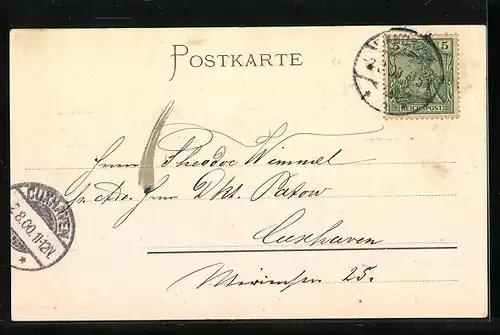 POSTKARTE
5 5
REICHSPOST
Herrn Theodor Wimmel
pr. Adr. Herrn Dkt. Patow
Cuxhaven
25.
CUXHAVEN
8.00. 11-12V.